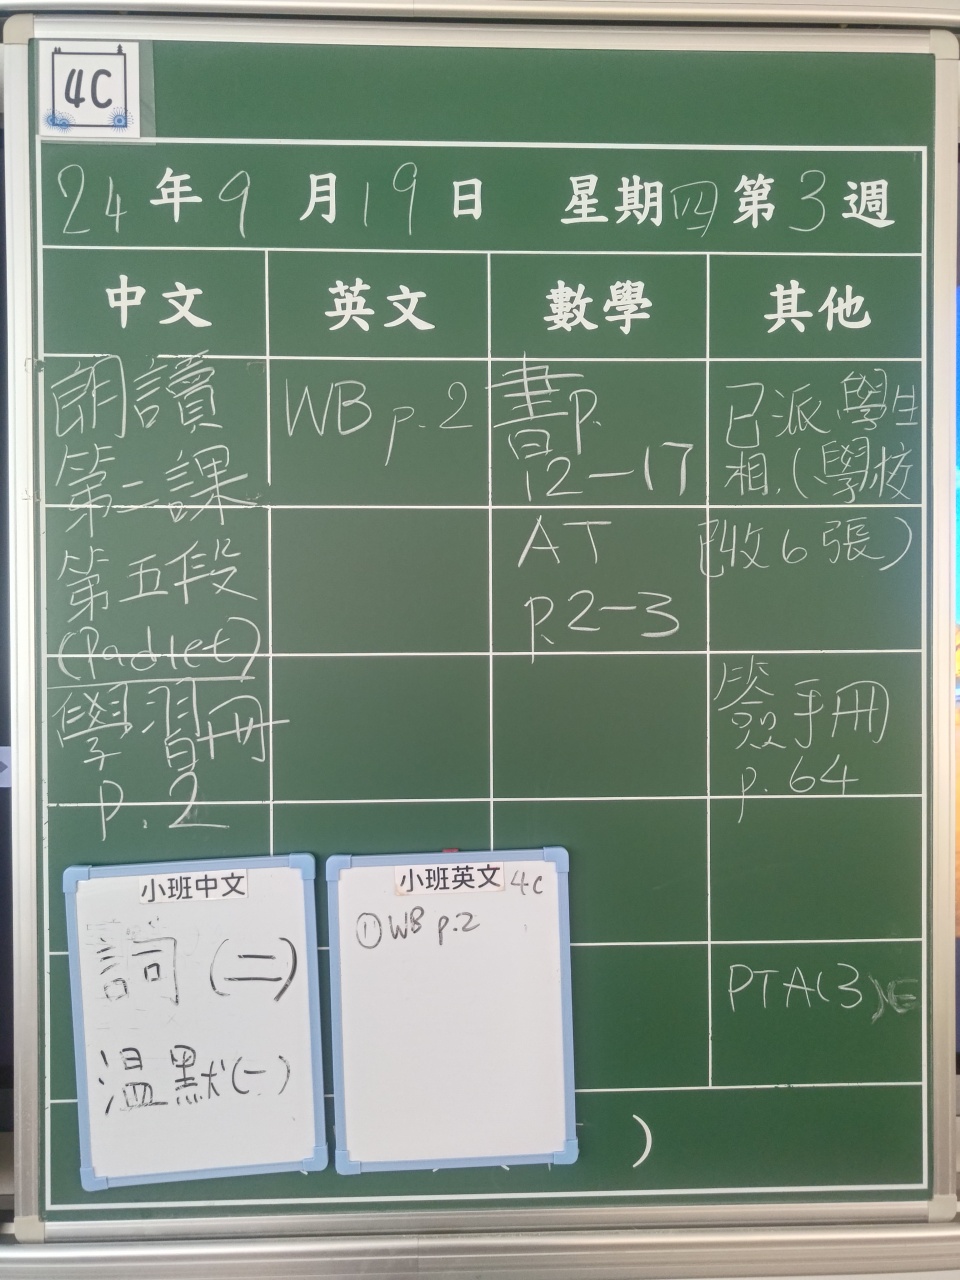 4C
24年9月19日 星期四 第3週
中文
英文
數學
其他
朗讀
第二課
第五段
(Padlet)
學習冊
p.2
WB p.2
書p.
12-17
AT
P.2-3
已派學生
相.(學校
已收6張)
簽手冊
p.64
PTA(3)
小班中文
詞(二)
溫默(一)
小班英文 4C
①WB p.2
)